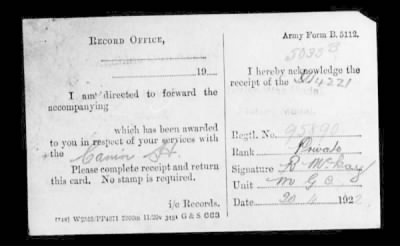 RECORD OFFICE,
19
I am directed to forward the
accompanying
which has been awarded
to you in respect of your services with
the
Please complete receipt and return
this card. No stamp is required.
i/c Records.
G & S
Army Form B. 5112.
5033
I hereby acknowledge the
receipt of the
Regtl. No. 95890
Rank Private
Signature R McKay
Unit M G C
Date 20 4 1922